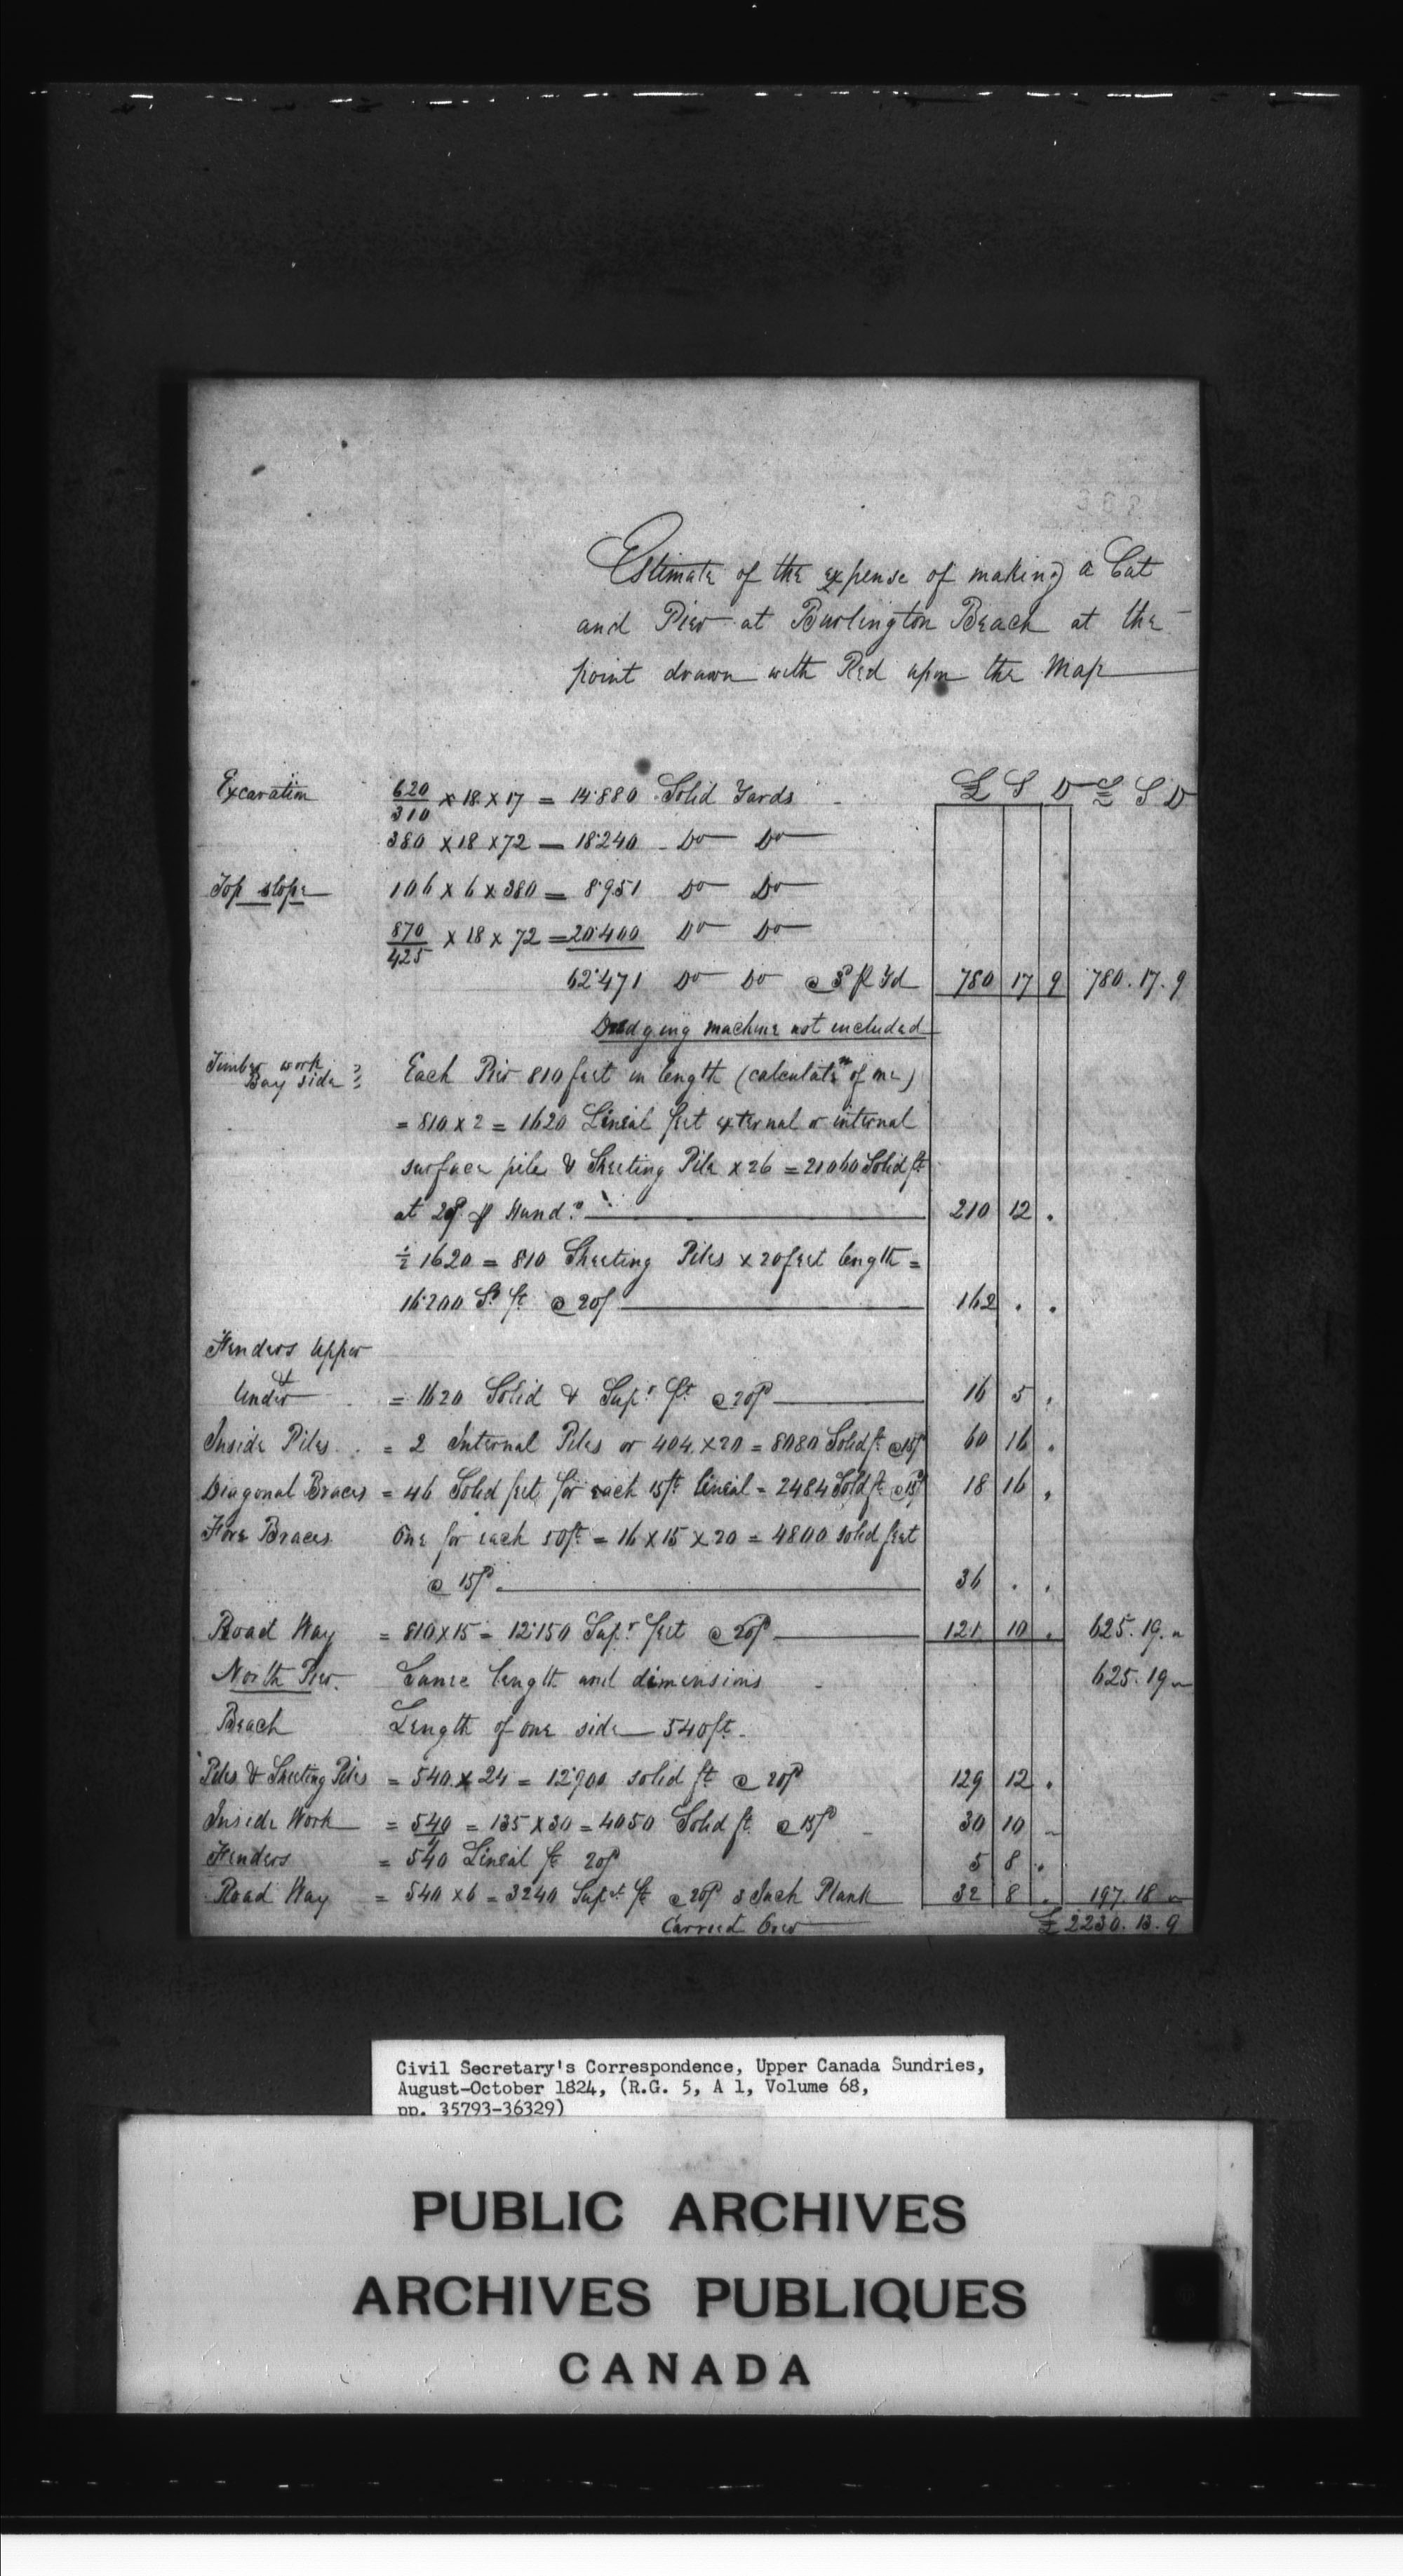 Estimate of the expense of making a Cut
and Pier at Burlington Beach at the
point drawn with Red upon the Map
£ S D £ S D
Excavation 620/310 × 18 × 17 = 14'880 Solid Yards
380 × 18 × 72 = 18240 Do Do
Top slope 106 × 6 × 380 = 8'951 Do Do
870/425 × 18 × 72 = 20'400 Do Do
62'471 Do Do @ 3d p Yd 780 17 9 780.17.9
Dredging machine not included
Timber work
Bay side
Each Pier 810 feet in length (calculatn of one)
= 810 × 2 = 1620 Lineal feet external or internal
surface piles & Sheeting Pile × 26 = 21060 Solid ft
at 20/ p Hund. 210 12 .
½ 1620 = 810 Sheeting Piles × 20 feet length =
16'200 Sd ft @ 20/ 162 . .
Fenders Upper
&
Under = 1620 Solid & Supr ft @ 20/ 16 5 .
Inside Piles = 2 Internal Piles or 404 × 20 = 8080 Solid ft @ 15/ 60 16 .
Diagonal Braces = 46 Solid feet for each 15 ft lineal = 2484 Solid ft @ 15/ 18 16 .
Fore Braces One for each 50 ft = 16 × 15 × 20 = 4800 solid feet
@ 15/ 36 . .
Road Way = 810 × 15 = 12'150 Supr feet @ 20/ 121 10 . 625.19.
North Pier. Same length and dimensions 625.19
Beach Length of one side 540 ft.
Piles & Sheeting Piles = 540 × 24 = 12'900 solid ft @ 20/ 129 12 .
Inside Work = 540/4 = 135 × 30 = 4050 Solid ft @ 15/ 30 10
Fenders = 540 Lineal ft 20/ 5 8 .
Road Way = 540 × 6 = 3240 Supr ft @ 20/ 3 Inch Plank 32 8 . 197.18
Carried Over £ 2230.13.9
Civil Secretary's Correspondence, Upper Canada Sundries,
August-October 1824, (R.G. 5, A 1, Volume 68,
pp. 35793-36329)
PUBLIC ARCHIVES
ARCHIVES PUBLIQUES
CANADA